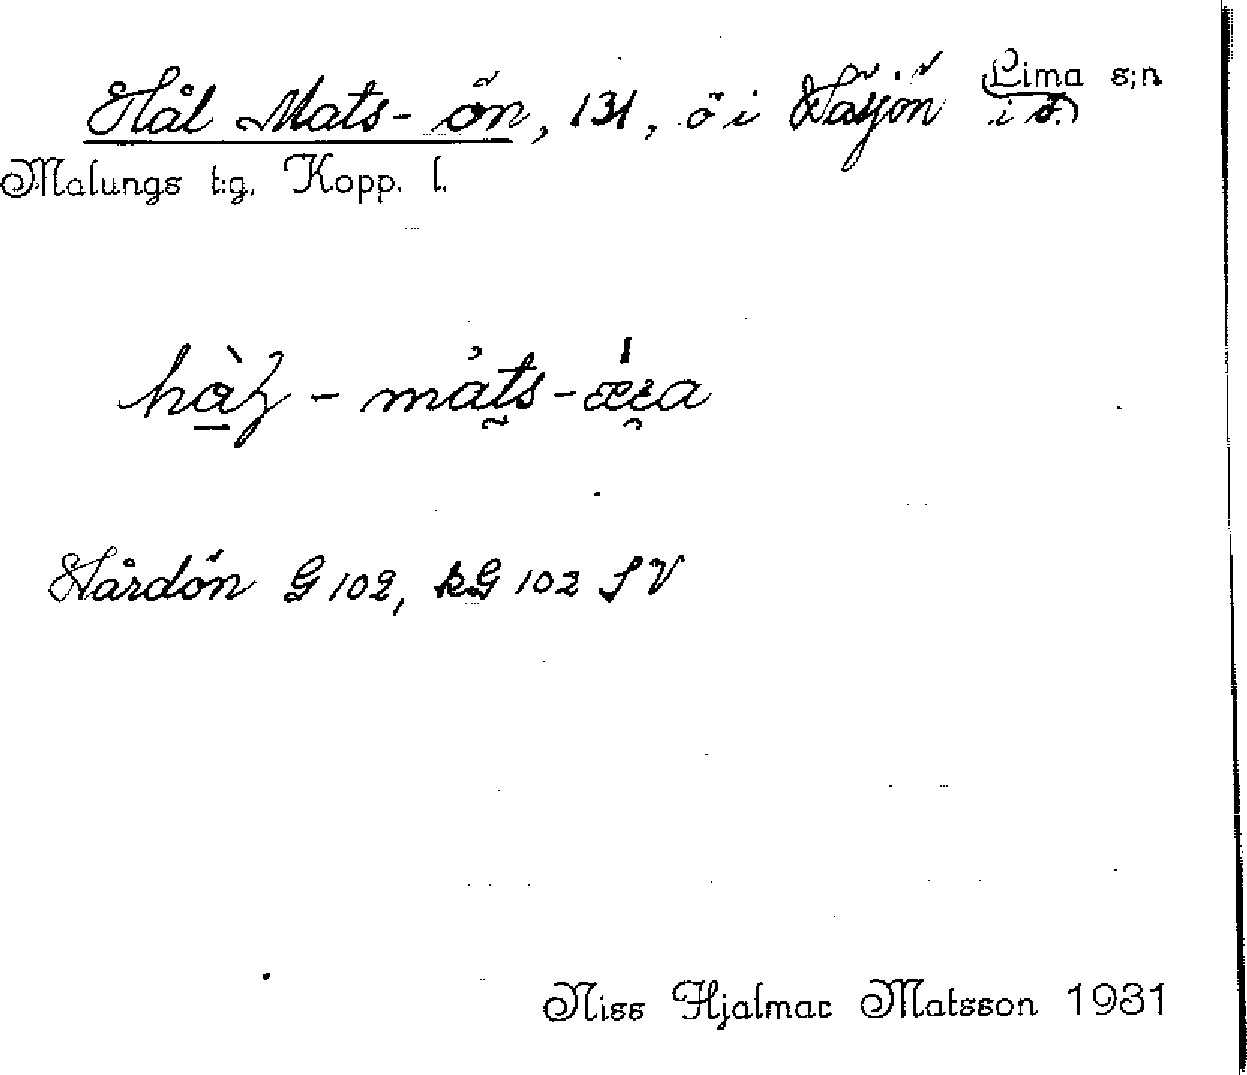 Hål Mats-ön, 131, ö i Vasjön Lima s:n
i s.
Malungs t:g. Kopp. l.
Hårdön G 102, kG 102 SV
Niss Hjalmar Matsson 1931